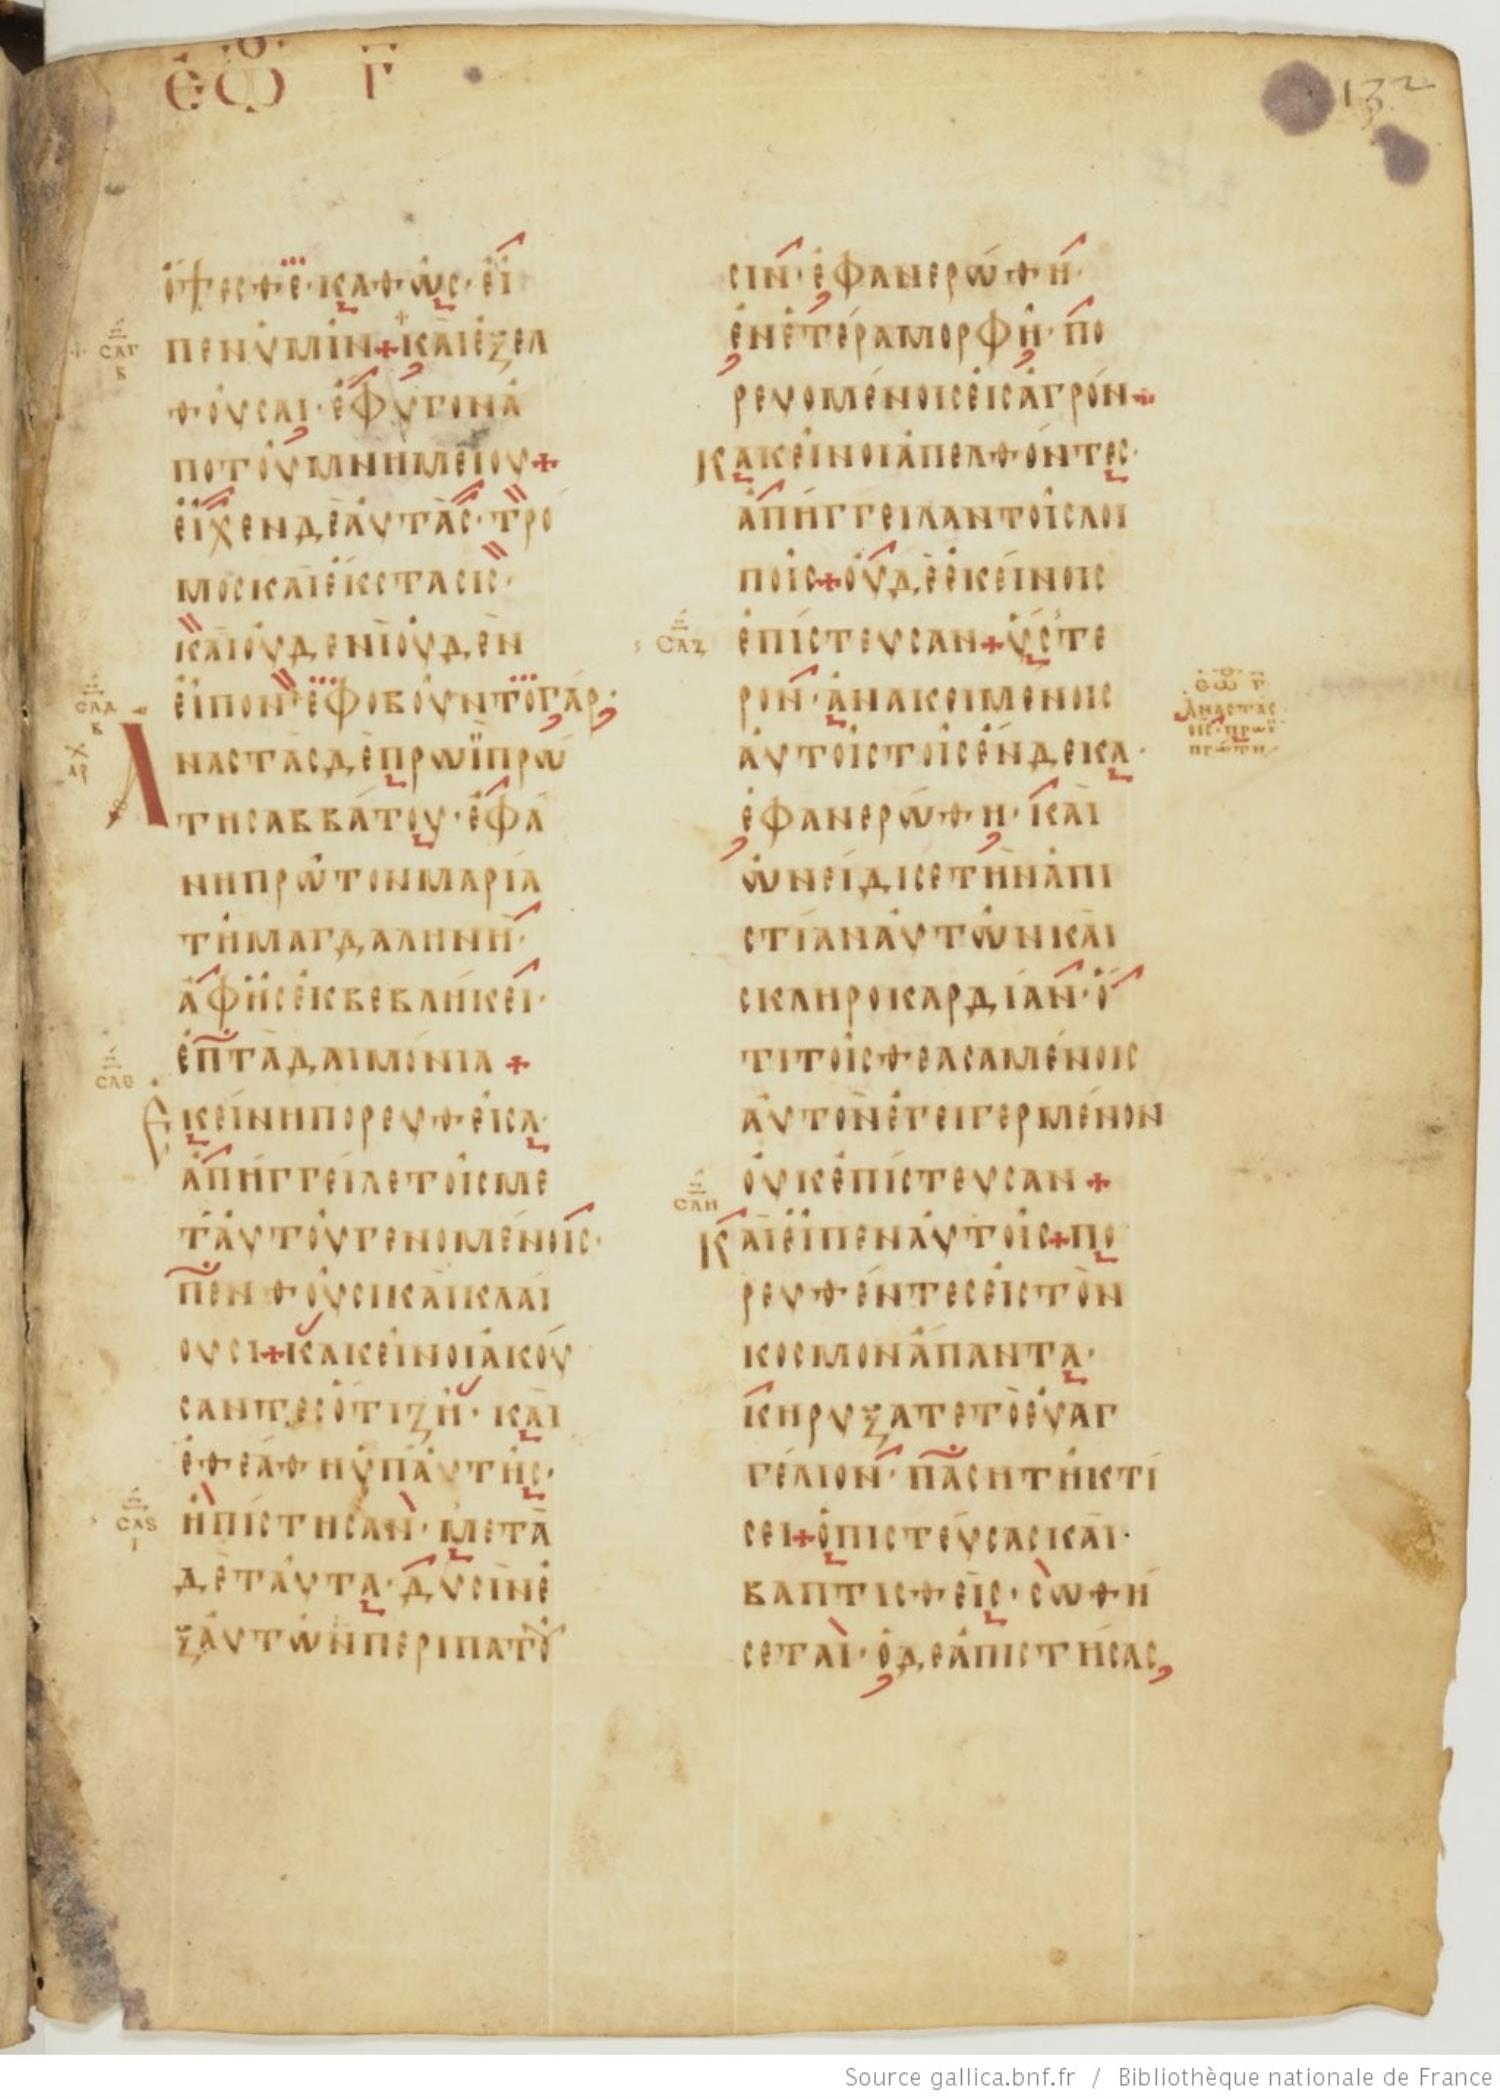 ἑωθ Γ
132
ὄψεσθε· καθὼς· εἶ
πεν ὑμῖν + καὶ ἐξελ
θοῦσαι· ἔφυγον ἀ
πὸ τοῦ μνημείου +
εἶχεν δὲ αὐτὰς· τρό
μος καὶ ἔκστασις·
καὶ οὐδενὶ οὐδὲν
εἶπον· ἐφοβοῦντο γάρ·
Ἀναστὰς δὲ πρωῒ πρώ
τη σαββάτου· ἐφά
νη πρῶτον μαρία
τῆ μαγδαληνῆ·
ἀφ ἧς ἐκβεβλήκει·
ἑπτὰ δαιμόνια +
Ἐκείνη πορευθεῖσα·
ἀπήγγειλε τοῖς με
τ αὐτοῦ γενομένοις·
πενθοῦσι καὶ κλαί
ουσι + κἀκεῖνοι ἀκού
σαντες ὅτι ζῆ· καὶ
ἐθεάθη ὑπ αὐτῆς·
ἠπίστησαν· μετὰ
δὲ ταῦτα· δυσὶν ἐ
ξ αὐτῶν περιπατοῦ
σιν· ἐφανερώθη·
ἐν ἑτέρα μορφῆ· πο
ρευομένοις εἰς ἀγρόν +
Κἀκεῖνοι ἀπελθόντες·
ἀπήγγειλαν τοῖς λοι
ποῖς + οὐδὲ ἐκείνοις
ἐπίστευσαν + ὕστε
ρον· ἀνακειμένοις
αὐτοῖς τοῖς ἕνδεκα·
ἐφανερώθη· καὶ
ὠνείδισε τὴν ἀπι
στίαν αὐτῶν καὶ
σκληροκαρδίαν· ὅ
τι τοῖς θεασαμένοις
αὐτὸν ἐγειγερμένον
οὐκ ἐπίστευσαν +
Καὶ εἶπεν αὐτοῖς + πο
ρευθέντες εἰς τὸν
κόσμον ἅπαντα·
κηρύξατε τὸ εὐαγ
γέλιον· πάση τῆ κτί
σει + ὁ πιστεύσας καὶ·
βαπτισθεὶς· σωθή
σεται· ὁ δὲ ἀπιστήσας
σλγ
β
σλδ
β
χ
αρ
σλε
σλς
ι
σλζ
σλη
ἑωθ Γ
Ἀναστὰς
ὁ ις· πρωῒ
πρώτη
Source gallica.bnf.fr / Bibliothèque nationale de France